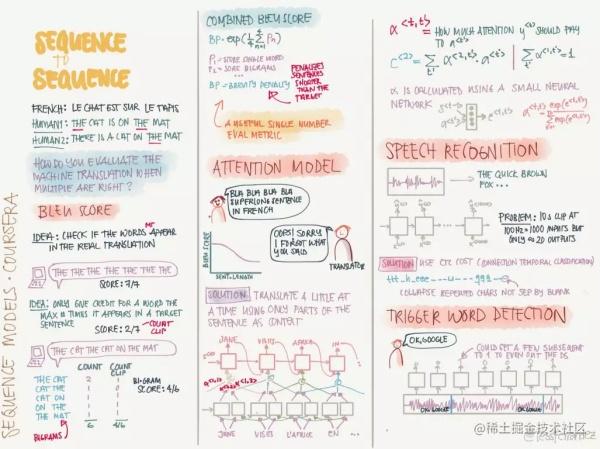 SEQUENCE MODELS • COURSERA
SEQUENCE
TO
SEQUENCE
FRENCH: LE CHAT EST SUR LE TAPIS
HUMAN1: THE CAT IS ON THE MAT
HUMAN2: THERE IS A CAT ON THE MAT
HOW DO YOU EVALUATE THE
MACHINE TRANSLATION WHEN
MULTIPLE ARE RIGHT?
BLEU SCORE
IDEA: CHECK IF THE WORDS MT APPEAR
IN THE REAL TRANSLATION
THE THE THE THE THE THE THE
SCORE: 7/7
IDEA: ONLY GIVE CREDIT FOR A WORD THE
MAX # TIMES IT APPEARS IN A TARGET
SENTENCE
SCORE: 2/7 COUNT CLIP
THE CAT THE CAT ON THE MAT
COUNT COUNT CLIP
THE CAT 2 1
CAT THE 1 0
CAT ON 1 1
ON THE 1 1
THE MAT 1 1
6 4/6
BI-GRAM
SCORE: 4/6
BIGRAMS
COMBINED BLEU SCORE
P1 = SCORE SINGLE WORD
P2 = SCORE BIGRAMS
BP = BREVITY PENALTY
PENALIZES
SENTENCES
SHORTER
THAN THE
TARGET
A USEFUL SINGLE NUMBER
EVAL METRIC
ATTENTION MODEL
BLA BLA BLA BLA
SUPERLONG SENTENCE
IN FRENCH
BLEU SCORE
SENT-LENGTH
OOPS! SORRY
I FORGOT WHAT
YOU SAID
TRANSLATOR
SOLUTION: TRANSLATE A LITTLE AT
A TIME USING ONLY PARTS OF THE
SENTENCE AS CONTEXT
JANE VISITS AFRICA IN
JANE VISITE L'AFRIQUE EN
α<t,t'> = HOW MUCH ATTENTION y<t> SHOULD PAY
TO a<t'>
α IS CALCULATED USING A SMALL NEURAL
NETWORK
SPEECH RECOGNITION
THE QUICK BROWN
FOX ...
PROBLEM: 10s CLIP AT
100Hz = 1000 INPUTS BUT
ONLY ~20 OUTPUTS
SOLUTION USE CTC COST (CONNECTION TEMPORAL CLASSIFICATION)
COLLAPSE REPEATED CHARS NOT SEP BY BLANK
TRIGGER WORD DETECTION
OK, GOOGLE
COULD SET A FEW SUBSEQUENT
TO 1 TO EVEN OUT THE DS
OK GOOGLE OK GOOGLE
@稀土掘金技术社区